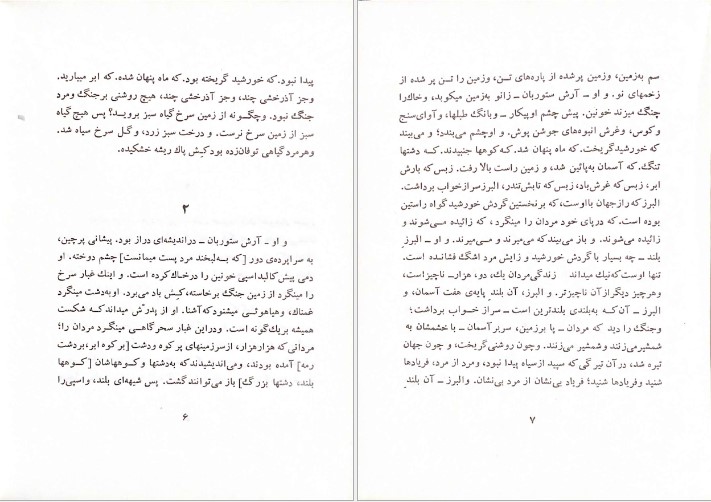 پیدا نبود. که خورشید گریخته بود. که ماه پنهان شده. که ابر میبارید.
وجز آذرخشی چند، وجز آذرخشی چند، هیچ روشنی برجنگ ومرد
جنگ نبود. وچگونه از زمین سرخ گیاه سبز بروید؟ پس هیچ گیاه
سبز از زمین سرخ نرست. و درخت سبز زرد، و گل سرخ سیاه شد.
وهرمرد گیاهی توفان‌زده بود کیش پاك ریشه خشکیده.
۲
و او ــ آرش ستوربان ــ دراندیشه‌ای دراز بود. پیشانی پرچین،
به سراپرده‌ی دور [که به‌لبخند مرد پست میمانست] چشم دوخته. او
دمی پیش کالبد اسپی خونین را درخاك کرده است. و اینك غبار سرخ
را مینگرد از زمین جنگ برخاسته، کیش باد می‌برد. او به‌دشت مینگرد
غمناك، وهیاهوئی میشنود که آشنا. او از پدرش میداند که شکست
همیشه بریك‌گونه است. ودراین غبار سحرگاهی مینگرد مردان را؛
مردانی که هزارهزار، ازسرزمینهای پر کوه ودشت [بر کوه ابر، بردشت
رمه] آمده بودند، ومی‌اندیشیدند که به‌دشتها و کوههاشان [کوهها
بلند، دشتها بزرگ] باز می‌توانند گشت. پس شیهه‌ای بلند، واسپی‌را
۶
سم به‌زمین، وزمین پرشده از پاره‌های تن، وزمین را تن پر شده از
زخمهای نو. و او ــ آرش ستوربان ــ زانو به‌زمین میکوبد، وخاك‌را
چنگ میزند خونین. پیش چشم اوپیکار ــ وبانگ طبلها، وآوای‌سنج
و کوس، وغرش انبوه‌های جوشن پوش. و اوچشم می‌بندد؛ و می‌بیند
که خورشید گریخت. که ماه پنهان شد. که کوهها جنبیدند. که دشتها
تنگ. که آسمان به‌پائین شد، و زمین راست بالا رفت. زبس که بارش
ابر، زبس که غرش‌باد، زبس که تابش‌تندر، البرز سرازخواب برداشت.
البرز که راز جهان بااوست، که برنخستین گردش خورشید گواه راستین
بوده است. که درپای خود مردان را مینگرد، که زائیده می‌شوند و
زائیده می‌شوند. و باز می‌بیند که می‌میرند و می‌میرند. و او ــ البرز
بلند ــ چه بسیار با گردش خورشید و زایش مرد اشگ فشانده است.
تنها اوست که نیك میداند زندگی مردان یك، دو، هزار ــ ناچیز است،
وهرچیز دیگر از آن ناچیزتر. و البرز، آن بلند پایه‌ی هفت آسمان، و
البرز ــ آن که به‌بلندی بلندترین است ــ سراز خواب برداشت؛
وجنگ را دید که مردان ــ پا برزمین، سربرآسمان ــ با خشمشان به
شمشیر می‌زنند وشمشیر می‌زنند. وچون روشنی گریخت، و چون جهان
تیره شد، درآن تیرگی که سپید ازسیاه پیدا نبود، ومرد از مرد، فریادها
شنید وفریادها شنید؛ فریاد بی‌نشان از مرد بی‌نشان. والبرز ــ آن بلند
۷